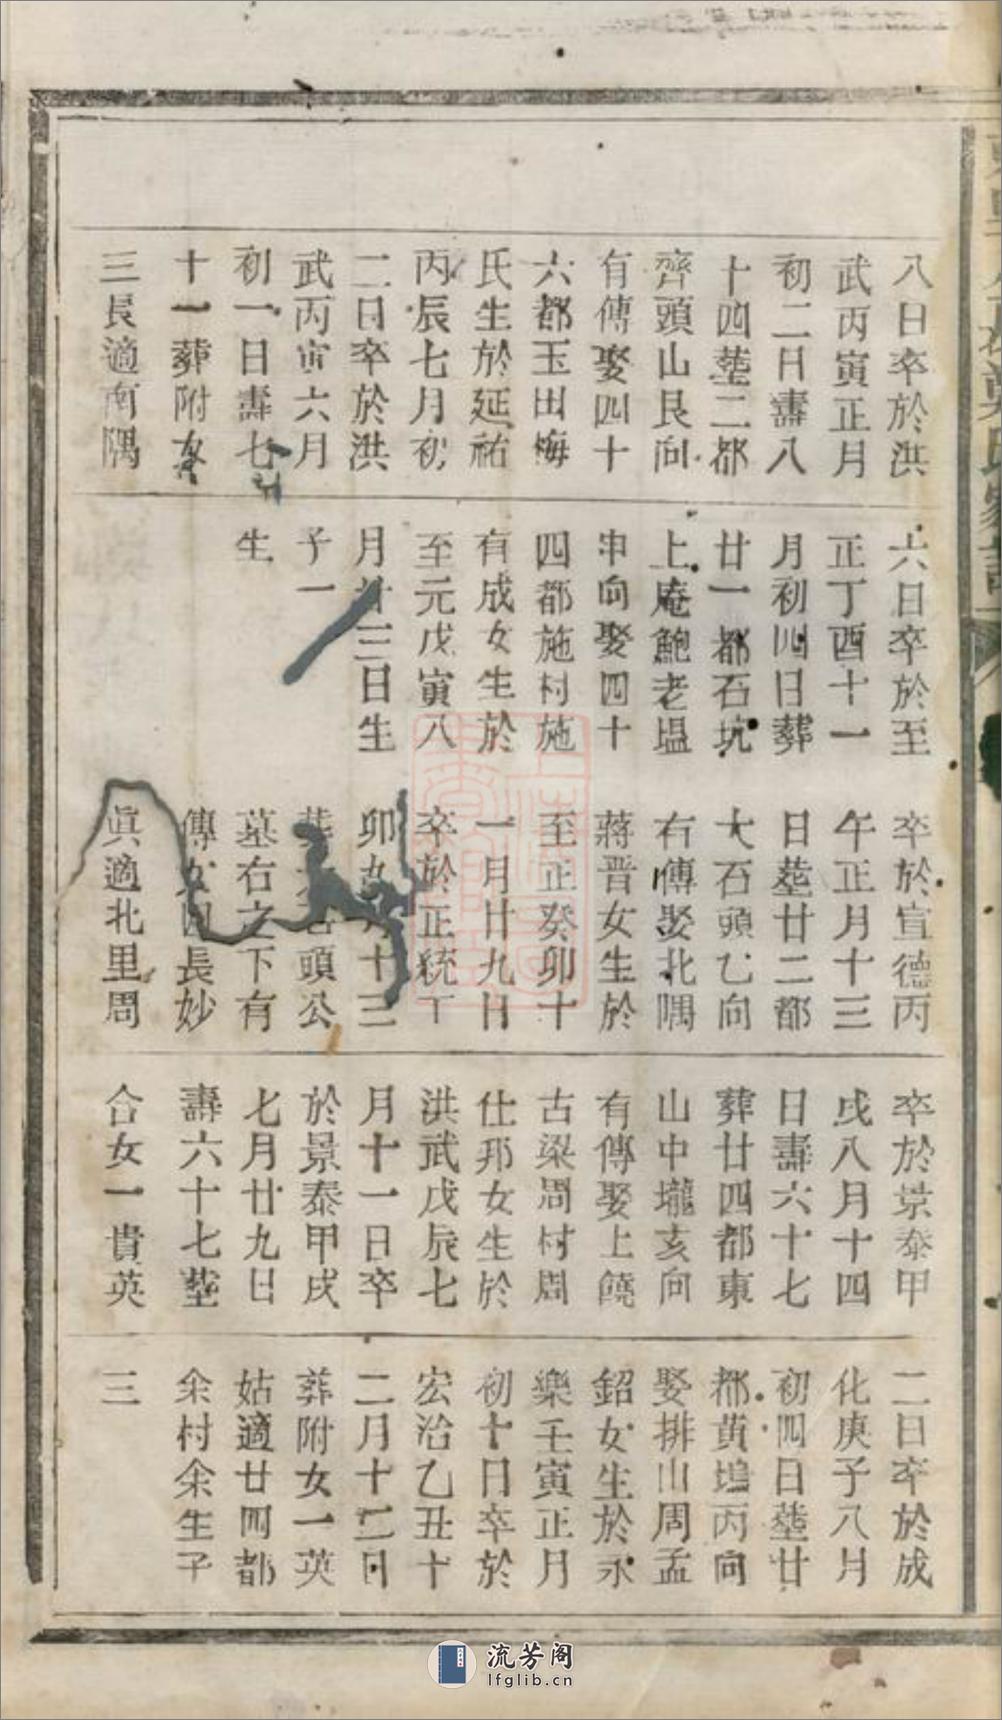 八日卒於洪
武丙寅正月
初二日壽八
十四塟二都
齊頭山艮向
有傳娶四十
六都玉田梅
氏生於延祐
丙辰七月初
二日卒於洪
武丙寅六月
初一日壽七
十一葬附女
三長適南隅
六日卒於至
正丁酉十一
月初四日葬
廿一都石坑
上庵鮑老塭
申向娶四十
四都施村施
有成女生於
至元戊寅八
月廿三日生
子一
生
卒於宣德丙
午正月十三
日塟廿二都
大石頭乙向
右傳娶北隅
蔣晋女生於
至正癸卯十
一月廿九日
卒於正統丁
卯九月十三
頭公
墓右之下有
傳女四長妙
眞適北里周
卒於景泰甲
戌八月十四
日壽六十七
葬廿四都東
山中壠亥向
有傳娶上饒
古梁周村周
仕邦女生於
洪武戊辰七
月十一日卒
於景泰甲戌
七月廿九日
壽六十七塟
合女一貴英
二日卒於成
化庚子八月
初四日塟廿
都黄塢丙向
娶排山周孟
鉊女生於永
樂壬寅正月
初十日卒於
宏治乙丑十
二月十二日
葬附女一英
姑適廿四都
余村余生子
三
流芳阁
lfglib.cn